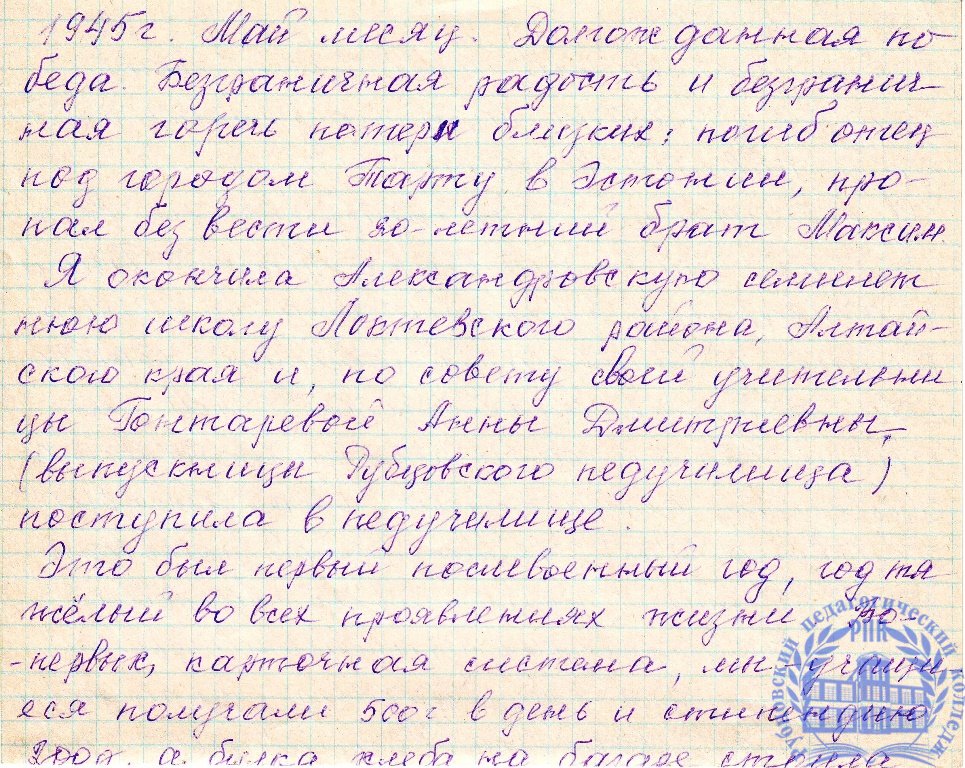 1945 г. Май месяц. Долгожданная по
беда. Безграничная радость и безгранич-
ная горечь потери близких: погиб отец
под городом Тарту в Эстонии, про-
пал без вести 20-летний брат Максим.
Я окончила Александровскую семилет
нюю школу Локтевского района, Алтай-
ского края и, по совету своей учительни
цы Гонтаревой Анны Дмитриевны,
(выпускницы Рубцовского педучилища)
поступила в педучилище.
Это был первый послевоенный год, год тя
жёлый во всех проявлениях жизни. Во-
-первых, карточная система, мы - учащи
еся получали 500г в день и стипендию
а булка хлеба на базаре стоила
Рубцовский педагогический колледж
РПК